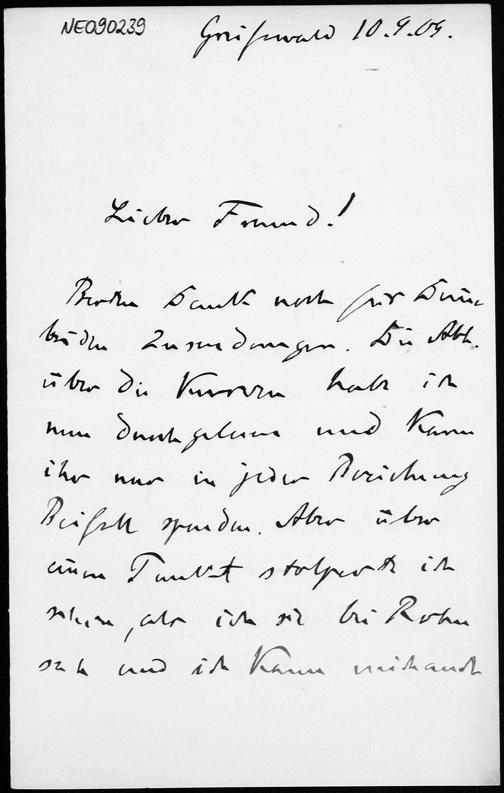 NE090239
Greifswald 10.9.09.
Lieber Freund!
Besten Dank noch für Deine
beiden Zusendungen. Die Abh.
über die Kurven habe ich
nun durchgelesen und kann
ihr nur in jeder Beziehung
Beifall spenden. Aber über
einen Punkt stolperte ich
schon, als ich sie bei Rohn
sah und ich kann mich auch